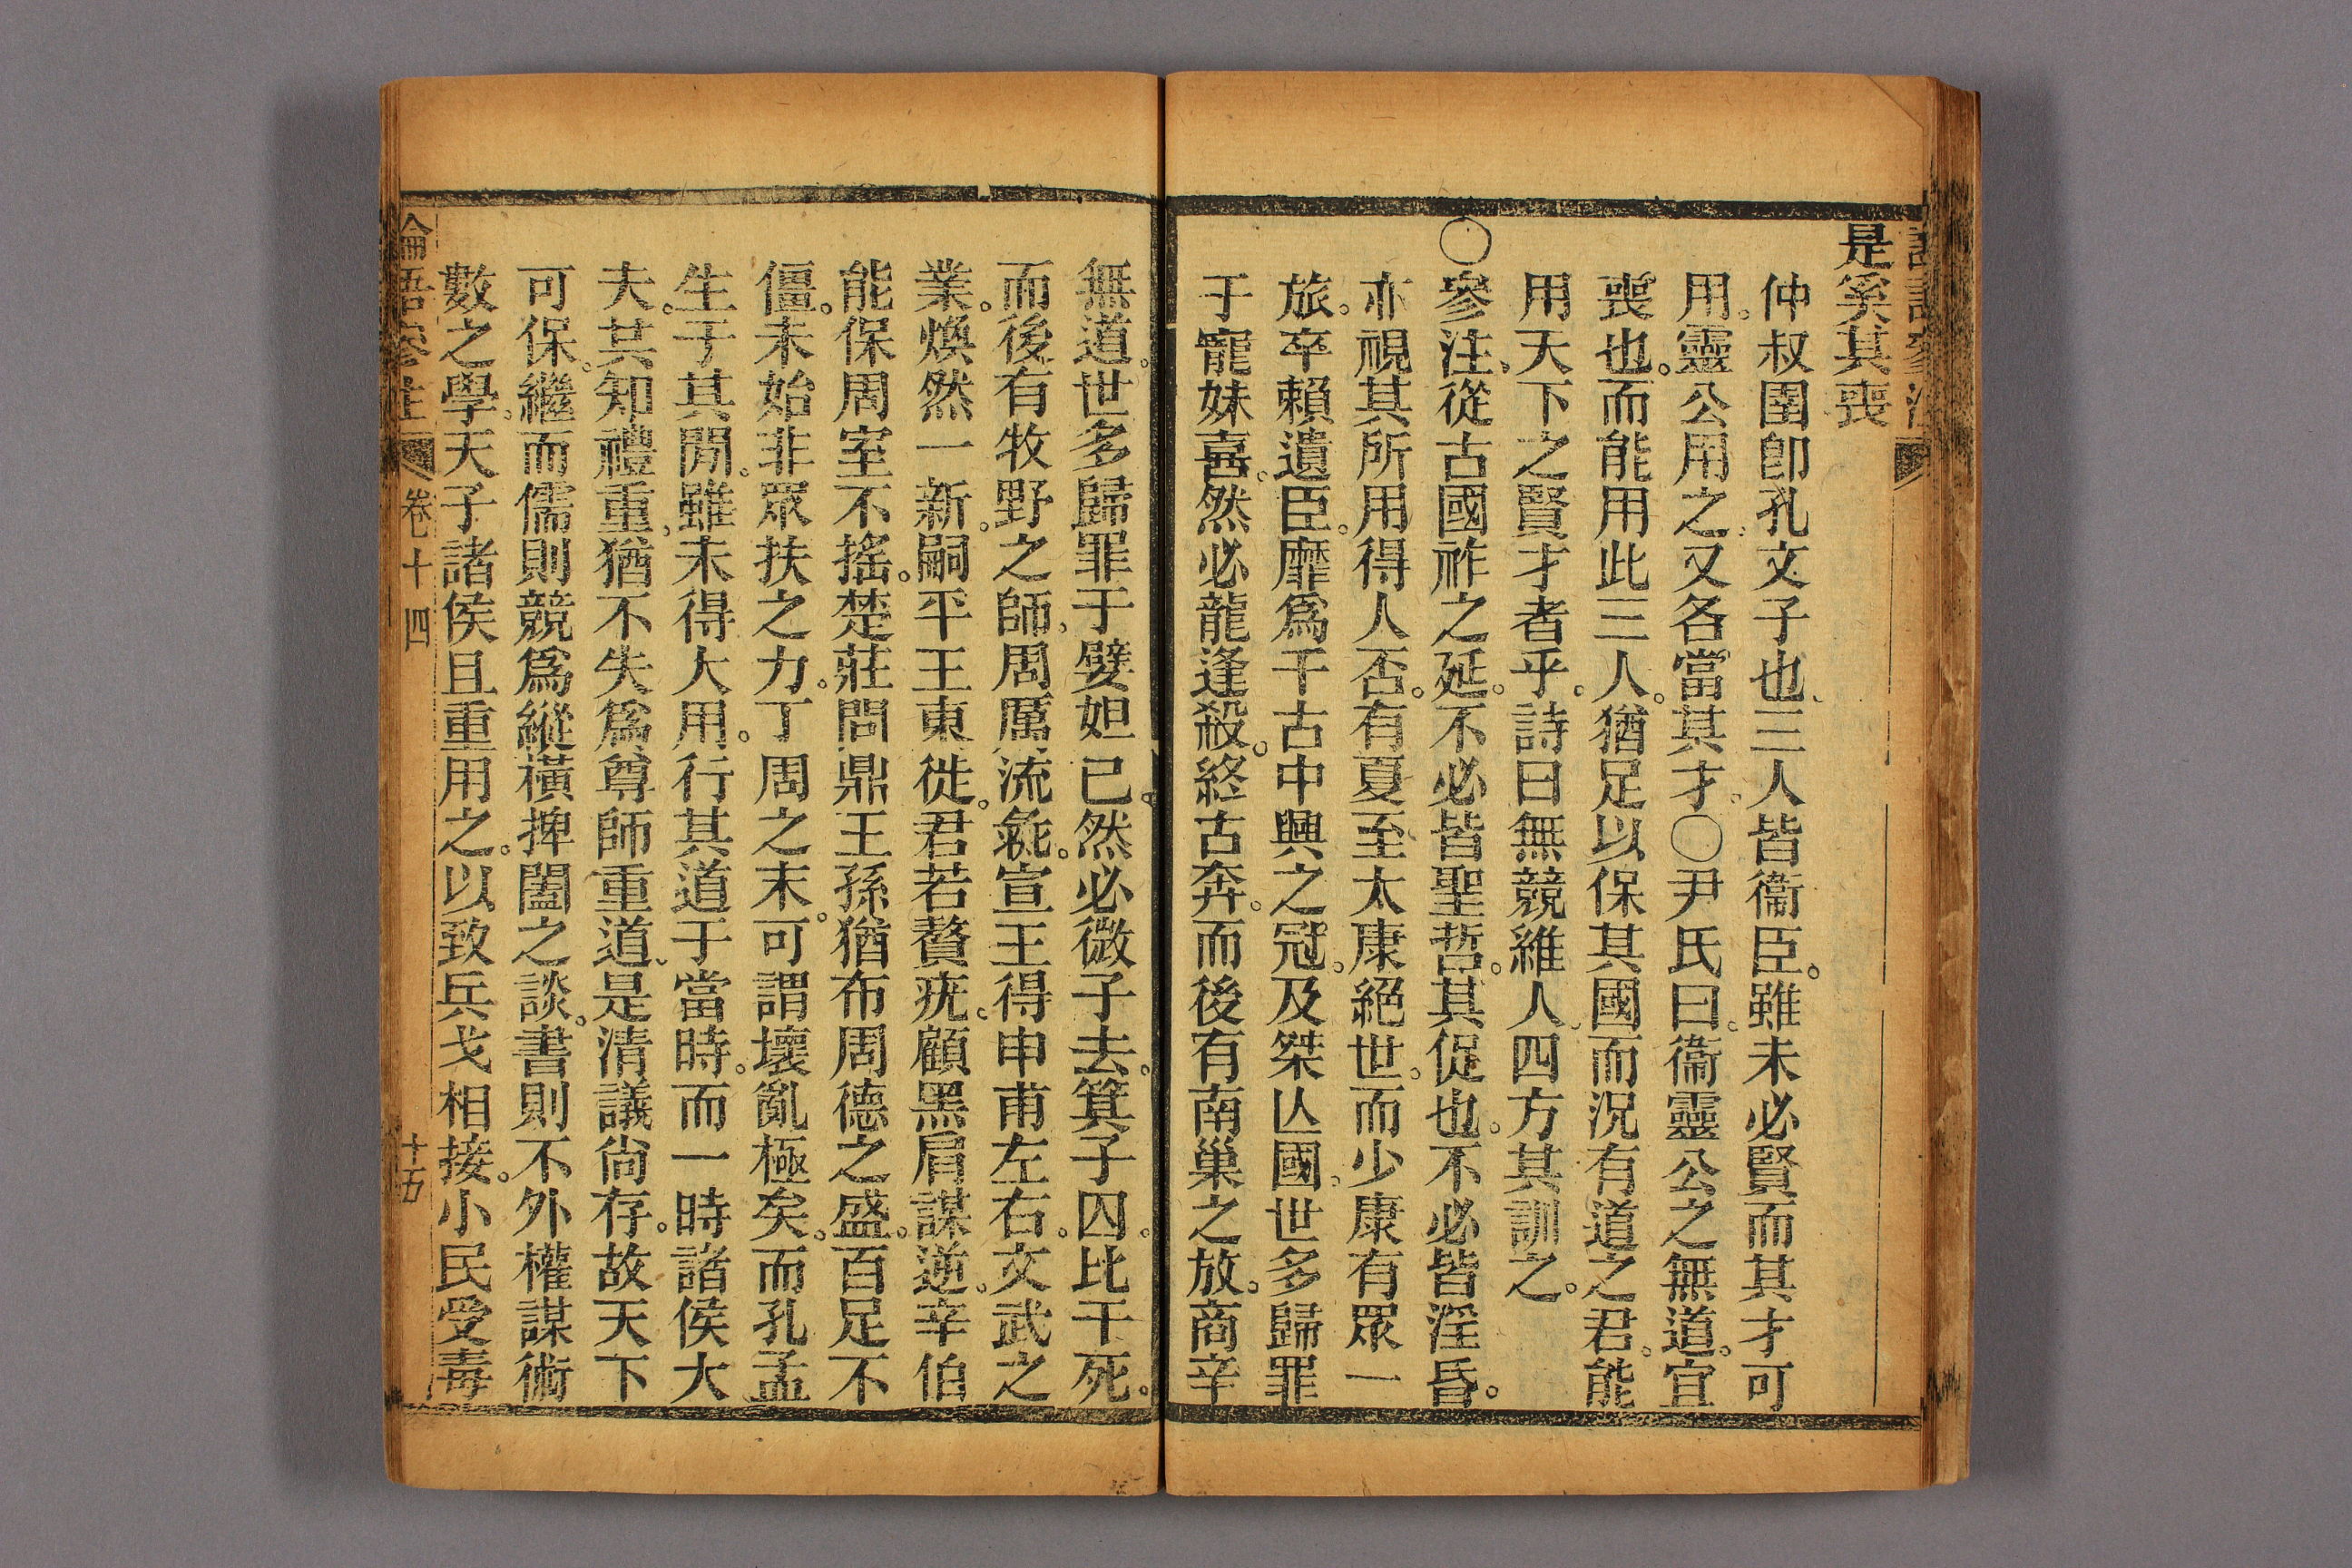 是奚其喪
仲叔圉卽孔文子也、三人皆衞臣。雖未必賢而其才可
用。靈公用之。又各當其才。○尹氏曰。衞靈公之無道。宜
喪也。而能用此三人。猶足以保其國而況有道之君。能
用天下之賢才者乎。詩曰無競維人。四方其訓之。
○參注、從古國祚之延。不必皆聖哲。其促也。不必皆淫昏。
亦視其所用得人否。有夏至太康絕世。而少康有眾一
旅。卒賴遺臣。靡爲千古中興之冠。及桀亾國。世多歸罪
于寵妹喜。然必龍逢殺。終古奔。而後有南巢之放。商辛
無道。世多歸罪于嬖妲已。然必微子去。箕子囚。比干死。
而後有牧野之師。周厲流彘。宣王得申甫左右。文武之
業。煥然一新。嗣平王東徙。君若贅疣。顧黑肩謀逆。辛伯
能保周室不搖。楚莊問鼎王孫猶布周德之盛。百足不
僵。未始非眾扶之力。丁周之末。可謂壞亂極矣。而孔孟
生于其閒。雖未得大用。行其道于當時。而一時諸侯大
夫。其知禮重。猶不失爲尊師重道。是清議尙存。故天下
可保。繼而儒則競爲縱橫捭闔之談。書則不外權謀術
數之學。天子諸侯且重用之。以致兵戈相接。小民受毒
論語參注 卷十四 十五